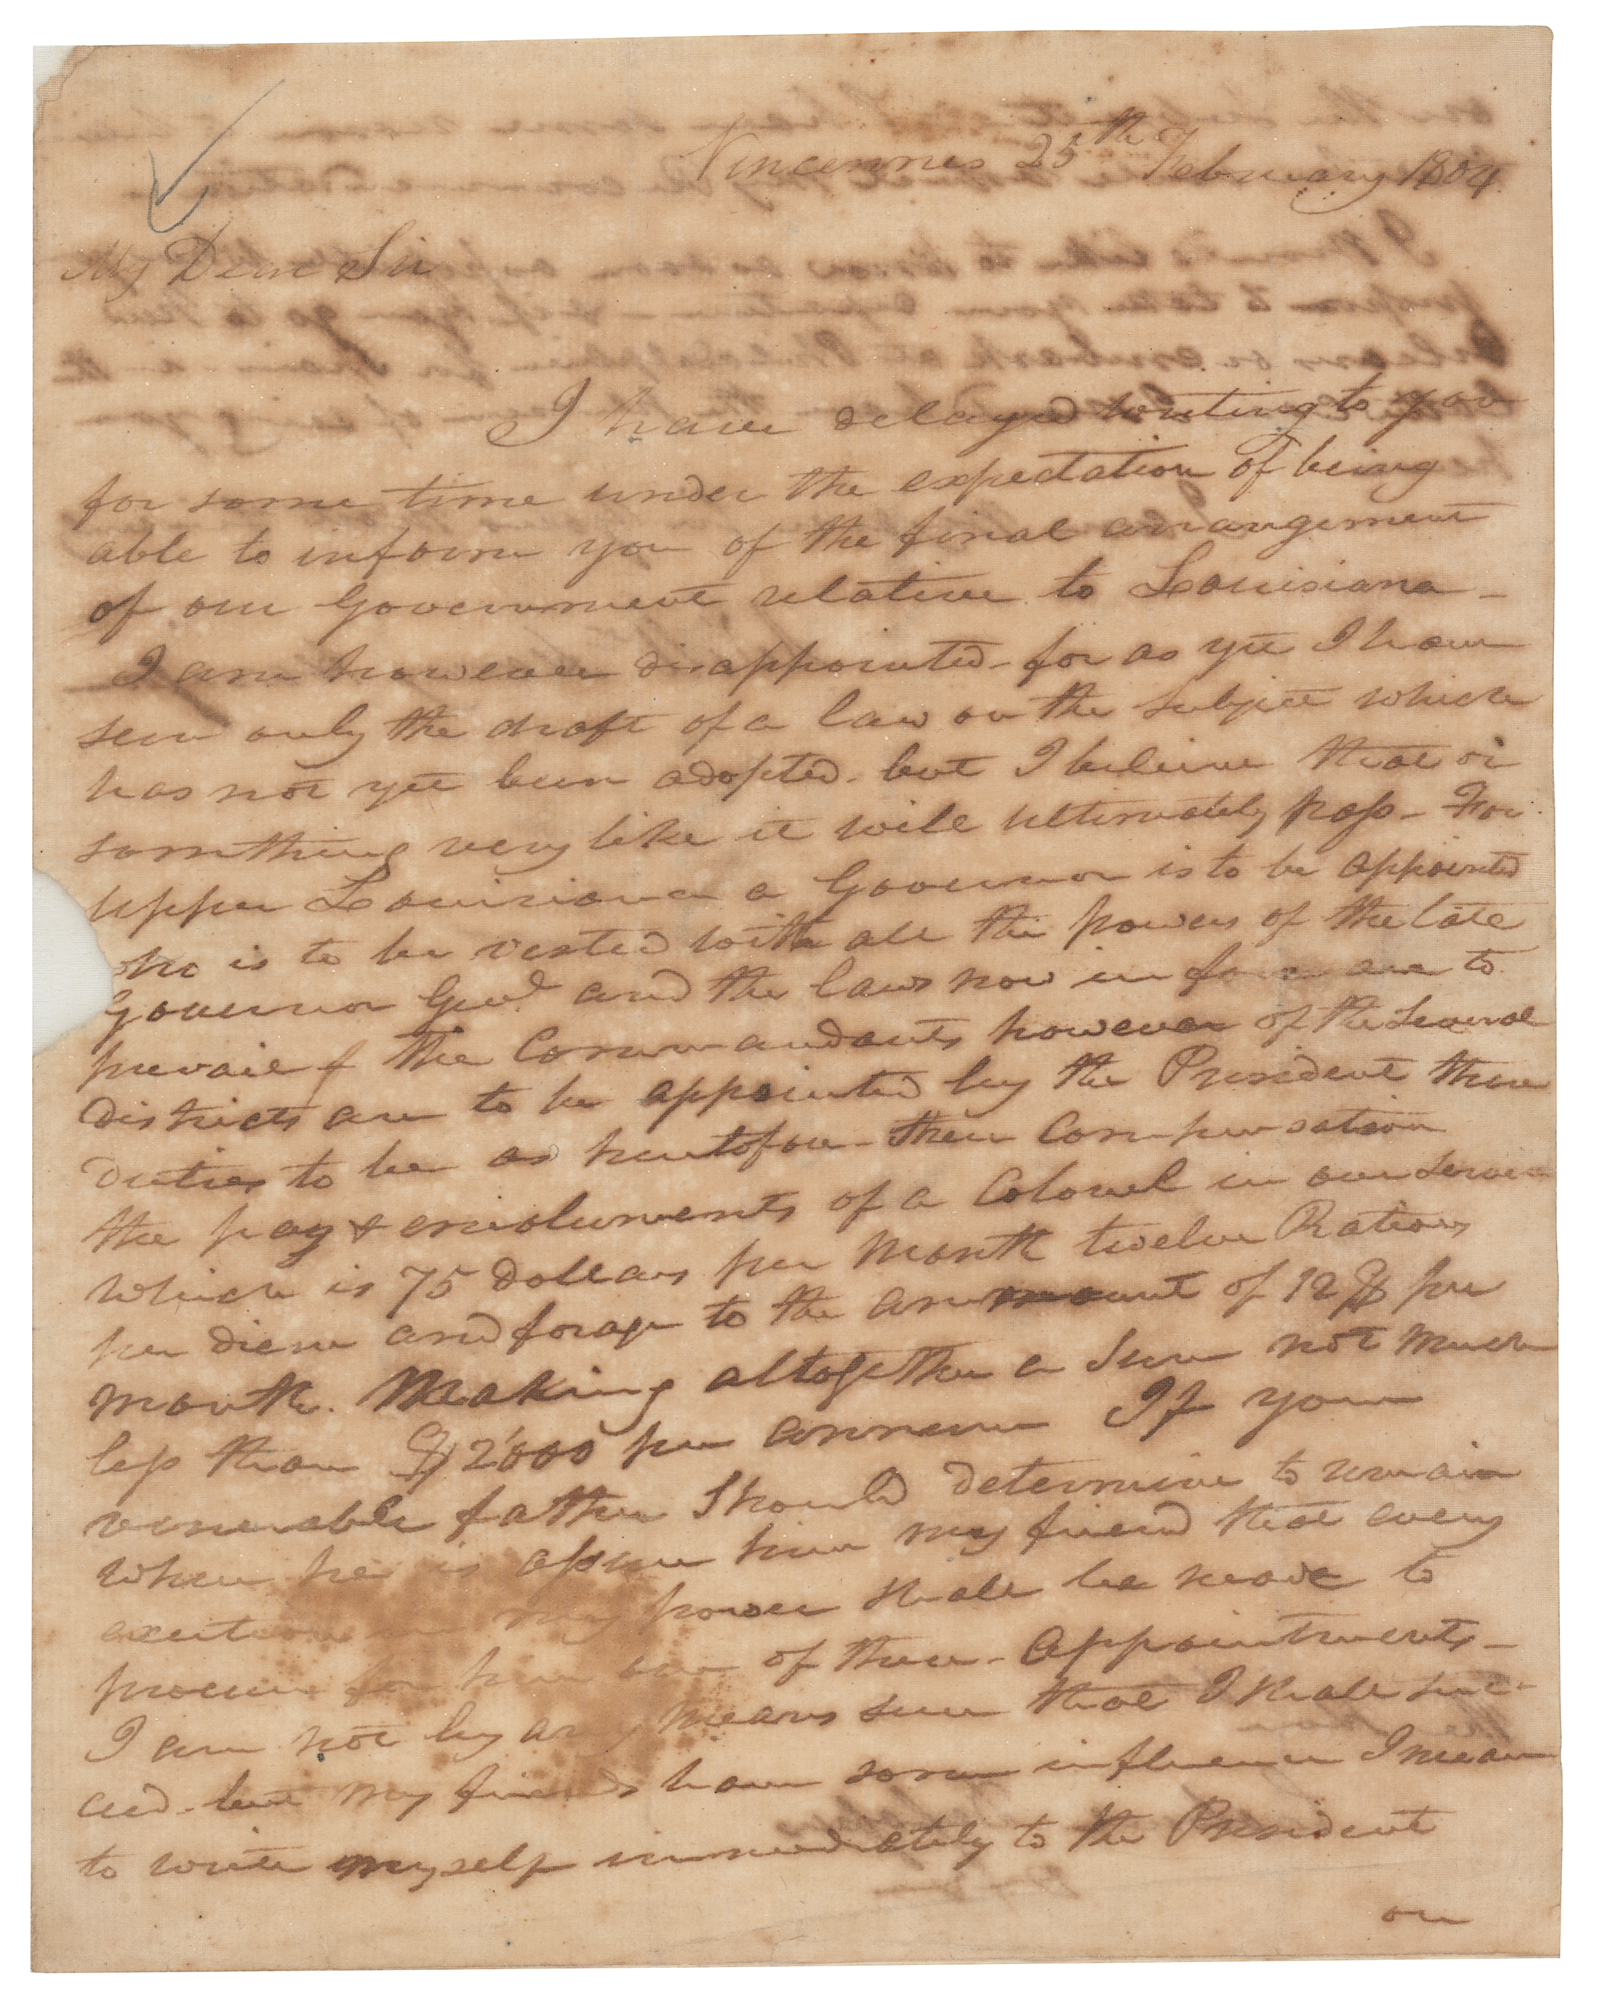 Vincennes 25th February 1804.
My Dear Sir
I have delayed writing to you
for some time under the expectation of being
able to inform you of the final arrangement
of our Government relative to Louisiana -
I am however disappointed - for as yet I have
seen only the draft of a law on the subject which
has not yet been adopted - but I believe that or
something very like it will ultimately pass - For
upper Louisiana a Governor is to be appointed
who is to be vested with all the powers of the late
Governor Genl. and the laws now in force are to
prevail & the Commandants however of the several
districts are to be appointed by the President their
duties to be as heretofore - their Compensation
the pay & emoluments of a Colonel in our service
which is 75 dollars per Month twelve Rations
per diem and forage to the ammount of 12 $ per
month. Making altogether a Sum not much
less than $ 2'000 per annum If your
venerable father Should determine to remain
where he is assure him my friend that every
exertion in my power shall be made to
procure for him one of these - appointments -
I am not by any means sure that I shall suc-
ceed - but my friends have some influence I mean
to write myself immediately to the President
on